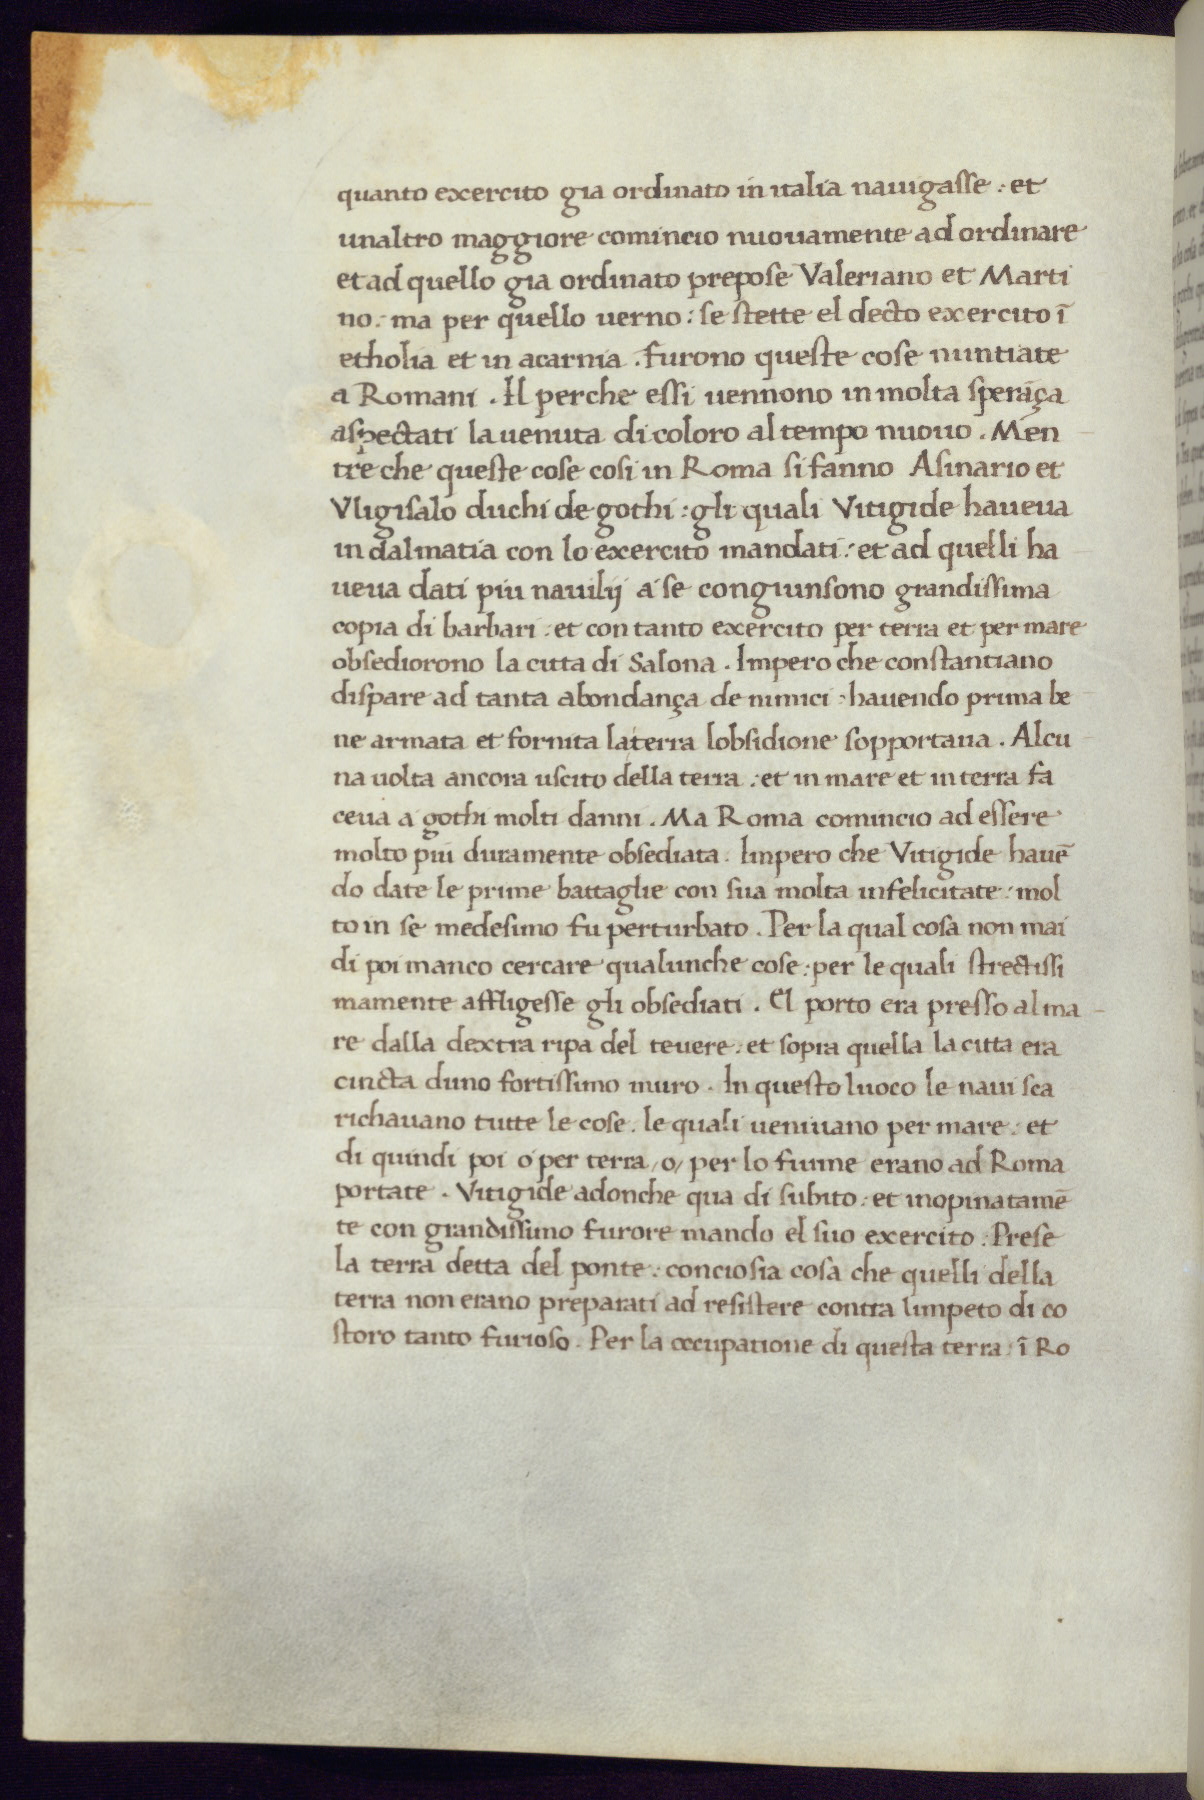 quanto exercito gia ordinato in italia nauigasse : et
unaltro maggiore comincio nuouamente ad ordinare
et ad quello gia ordinato prepose Valeriano et Marti
no : ma per quello uerno : se stette el decto exercito ī
etholia et in acarnia . furono queste cose nuntiate
a Romani . Il perche essi uennono in molta sperāça
aspectati la uenuta di coloro al tempo nuouo . Men
tre che queste cose cosi in Roma si fanno Asinario et
Vligisalo duchi de gothi : gli quali Vitigide haueua
in dalmatia con lo exercito mandati : et ad quelli ha
ueua dati piu nauilij a se congiunsono grandissima
copia di barbari : et con tanto exercito per terra et per mare
obsediorono la citta di Salona . Impero che constantiano
dispare ad tanta abondança de nimici : hauendo prima be
ne armata et fornita la terra lobsidione sopportaua . Alcu
na uolta ancora uscito della terra : et in mare et in terra fa
ceua a gothi molti danni . Ma Roma comincio ad essere
molto piu duramente obsediata . Impero che Vitigide hauē
do date le prime battaglie con sua molta infelicitate : mol
to in se medesimo fu perturbato . Per la qual cosa non mai
di poi manco cercare qualunche cose : per le quali strectissi
mamente affligesse gli obsediati . El porto era presso al ma
re dalla dextra ripa del teuere : et sopra quella la citta era
cincta duno fortissimo muro . In questo luoco le naui sca
richauano tutte le cose . le quali ueniuano per mare : et
di quindi poi o per terra /o/ per lo fiume erano ad Roma
portate . Vitigide adonche qua di subito : et inopinatamē
te con grandissimo furore mando el suo exercito . Prese
la terra detta del ponte : conciosia cosa che quelli della
terra non erano preparati ad resistere contra limpeto di co
storo tanto furioso . Per la occupatione di questa terra : ī Ro